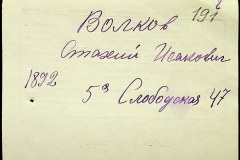 191
Волков
Стахий Исакович
1892
5я Слободская 47